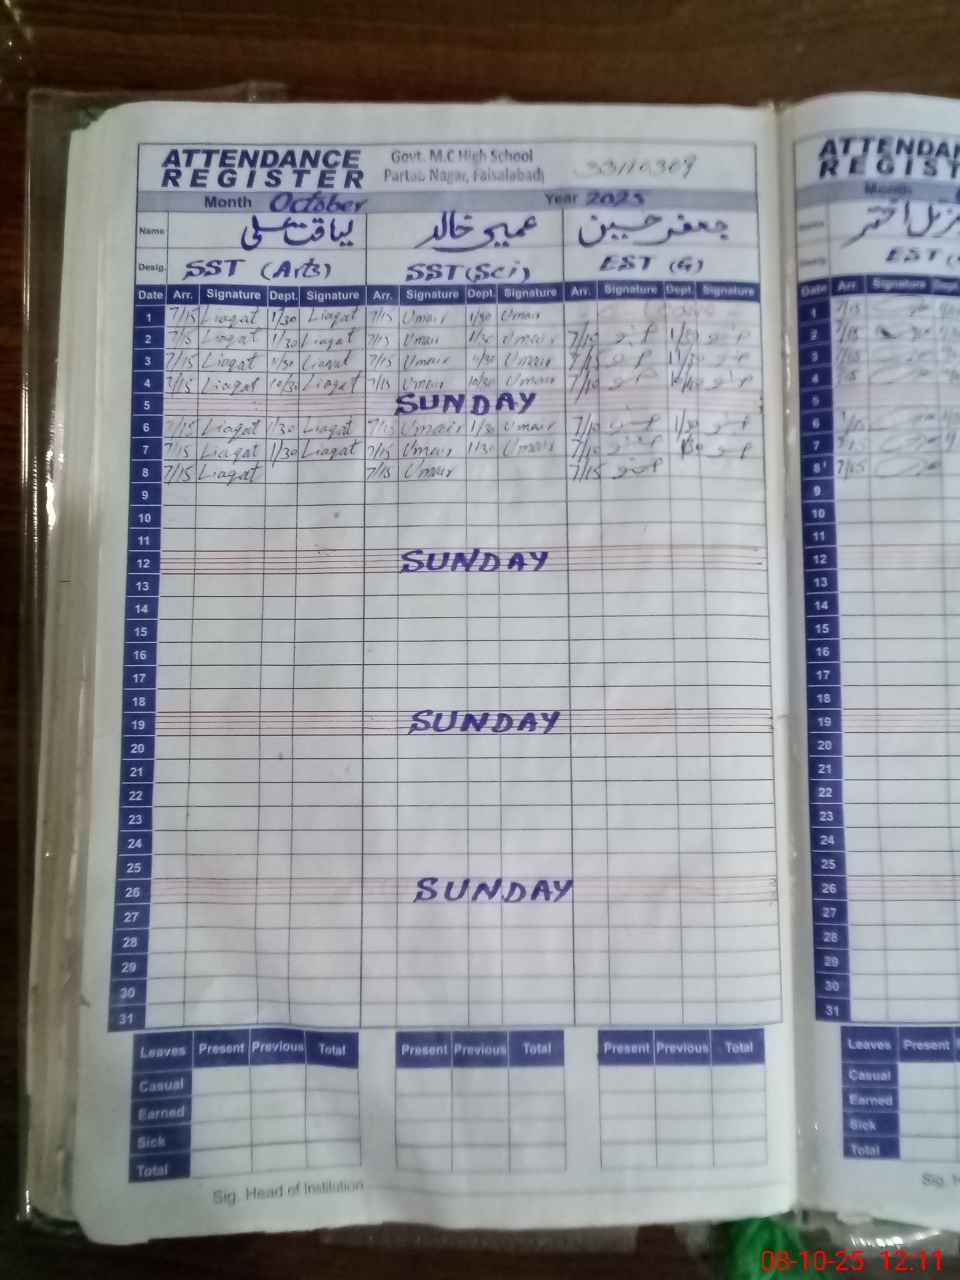 ATTENDANCE REGISTER Govt. M.C High School Partab Nagar, Faisalabad 33110309
Month October Year 2025
Name لیاقت علی عمیر خالد جعفر حسین
Desig. SST (Arts) SST (Sci) EST (G)
Date Arr. Signature Dept. Signature Arr. Signature Dept. Signature Arr. Signature Dept. Signature
1 7/15 Liaqat 1/30 Liaqat 7/15 Umair 1/30 Umair
2 7/15 Liaqat 1/30 Liaqat 7/15 Umair 1/30 Umair 7/15 1/30
3 7/15 Liaqat 11/30 Liaqat 7/15 Umair 11/30 Umair 7/15 11/30
4 7/15 Liaqat 10/30 Liaqat 7/15 Umair 10/30 Umair 7/10 10/10
5 SUNDAY
6 7/15 Liaqat 1/30 Liaqat 7/15 Umair 1/30 Umair 7/10 1/30
7 7/15 Liaqat 1/30 Liaqat 7/15 Umair 1/30 Umair 7/10
8 7/15 Liaqat 7/15 Umair 7/15
9
10
11
12 SUNDAY
13
14
15
16
17
18
19 SUNDAY
20
21
22
23
24
25
26 SUNDAY
27
28
29
30
31
Leaves Present Previous Total Present Previous Total Present Previous Total
Casual
Earned
Sick
Total
Sig. Head of Institution
ATTENDAN
REGIST
Month
EST (
Date Arr. Signature Dept.
1 7/15
2 7/15
3 7/15
4 7/15
5
6 7/15
7 7/15
8 7/15
9
10
11
12
13
14
15
16
17
18
19
20
21
22
23
24
25
26
27
28
29
30
31
Leaves Present
Casual
Earned
Sick
Total
Sig. H
08-10-25 12:11